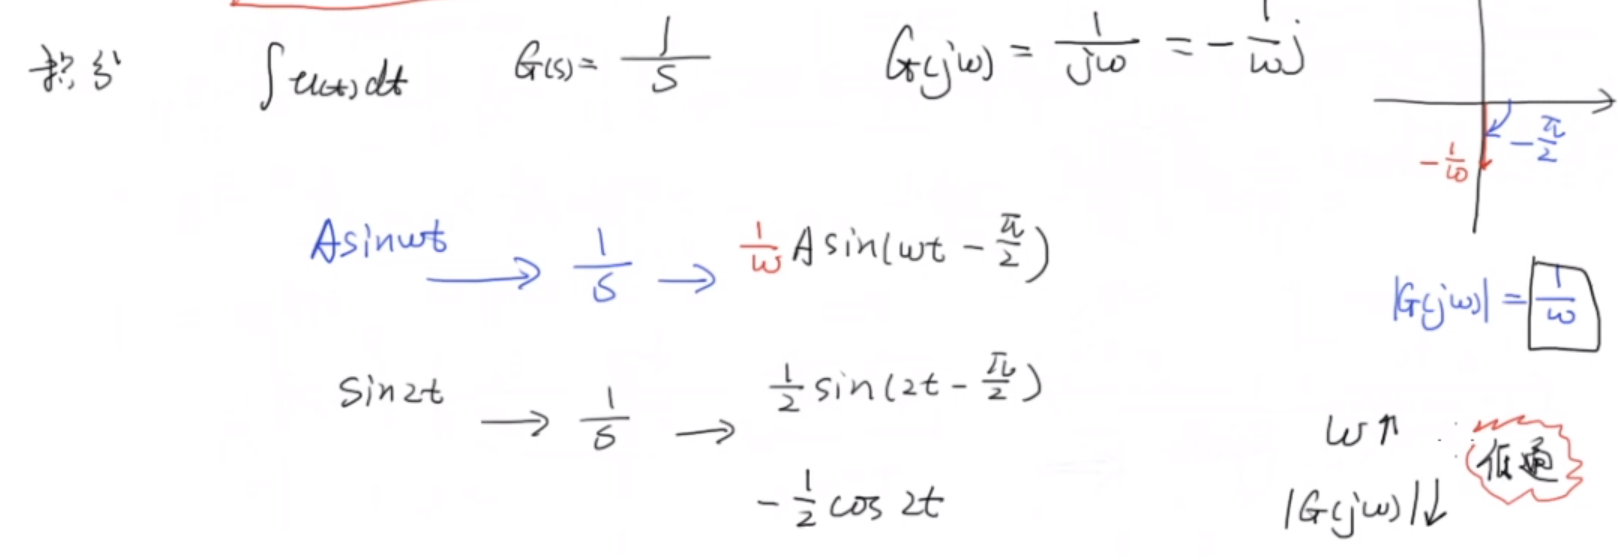 积分 ∫u(t)dt G(s) = 1/s G(jω) = 1/jω = -1/ω j
-π/2
-1/ω
Asinωt → 1/s → 1/ω A sin(ωt - π/2)
|G(jω)| = 1/ω
sin2t → 1/s → 1/2 sin(2t - π/2)
ω↑
低通
-1/2 cos 2t
|G(jω)|↓